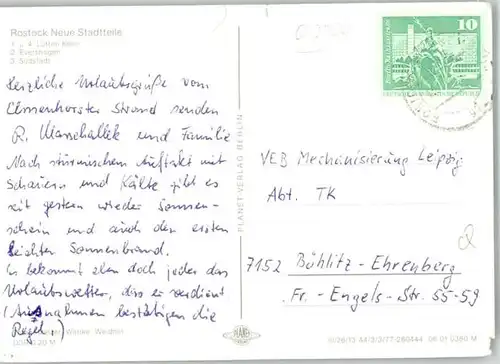 Rostock Neue Stadtteile
1 u. 4 Lütten Klein
2 Evershagen
3 Südstadt
10
Herzliche Urlaubsgrüße vom
Elmenhorster Strand senden
R. Marschallek und Familie
Nach stürmischem Auftakt mit
Schauern und Kälte gibt es
seit gestern wieder Sonnen-
schein und auch den ersten
leichten Sonnenbrand.
So bekommt eben doch jeder das
Urlaubswetter, das er verdient
(Ausnahmen bestätigen die
Regel.)
PLANET-VERLAG BERLIN
VEB Mechanisierung Leipzig
Abt. TK
7152 Böhlitz-Ehrenberg
Fr.-Engels-Str. 55-59